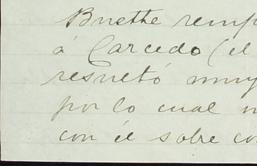 Buethe remp
á Carcedo (él
resuetó muy
por lo cual n
con él sobre co